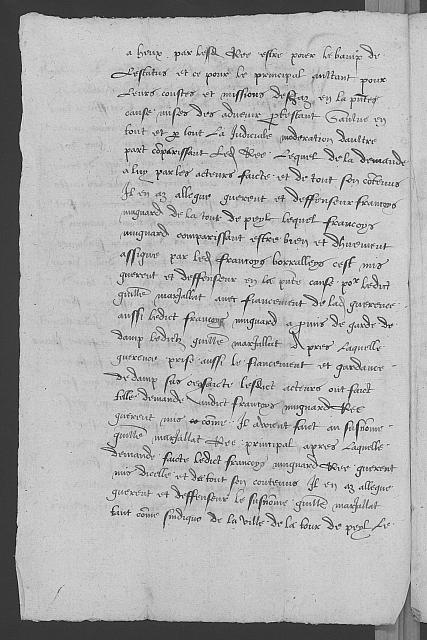 a heux par lesd Ree estre poier le bamp de
Lestatus et ce pour le principal aultant pour
Leurs coustes et missions desja en la pnte
cause mises des advenir protestant Saulve en
tout et par tout La Judiciale moderation daultre
part comparissant Led Ree Lequel de la demande
a luy par les acteurs faicte et de tout son contenus
Il en az allegue guerent et deffenseur francoys
mugnard de la tout de peyl lequel francoys
mugnard comparissant estre bien et dhuement
assigne par led francoys borralleys cest mis
guerent et deffenseur en la pnte cause por ledict
guille marsallat avec fiancement de lad guerence
aussi ledict francoys mugnard a pmis de garde de
damp ledict guille marsallat Apres laquelle
guerence prise aussi le fiancement et gardance
de damp sus lesdict acteurs ont faict
tille demande audict francoys mugnard Ree
guerent mis come Il avoient faict au susnome
guille marsallat Ree principal apres laquelle
demande faicte ledict francoys mugnard Ree guerent
mis dicelle et de tout son contenus Il en az allegue
guerent et deffenseur le susnome guille marsallat
tant come sindique de la ville de la tour de peyl Le